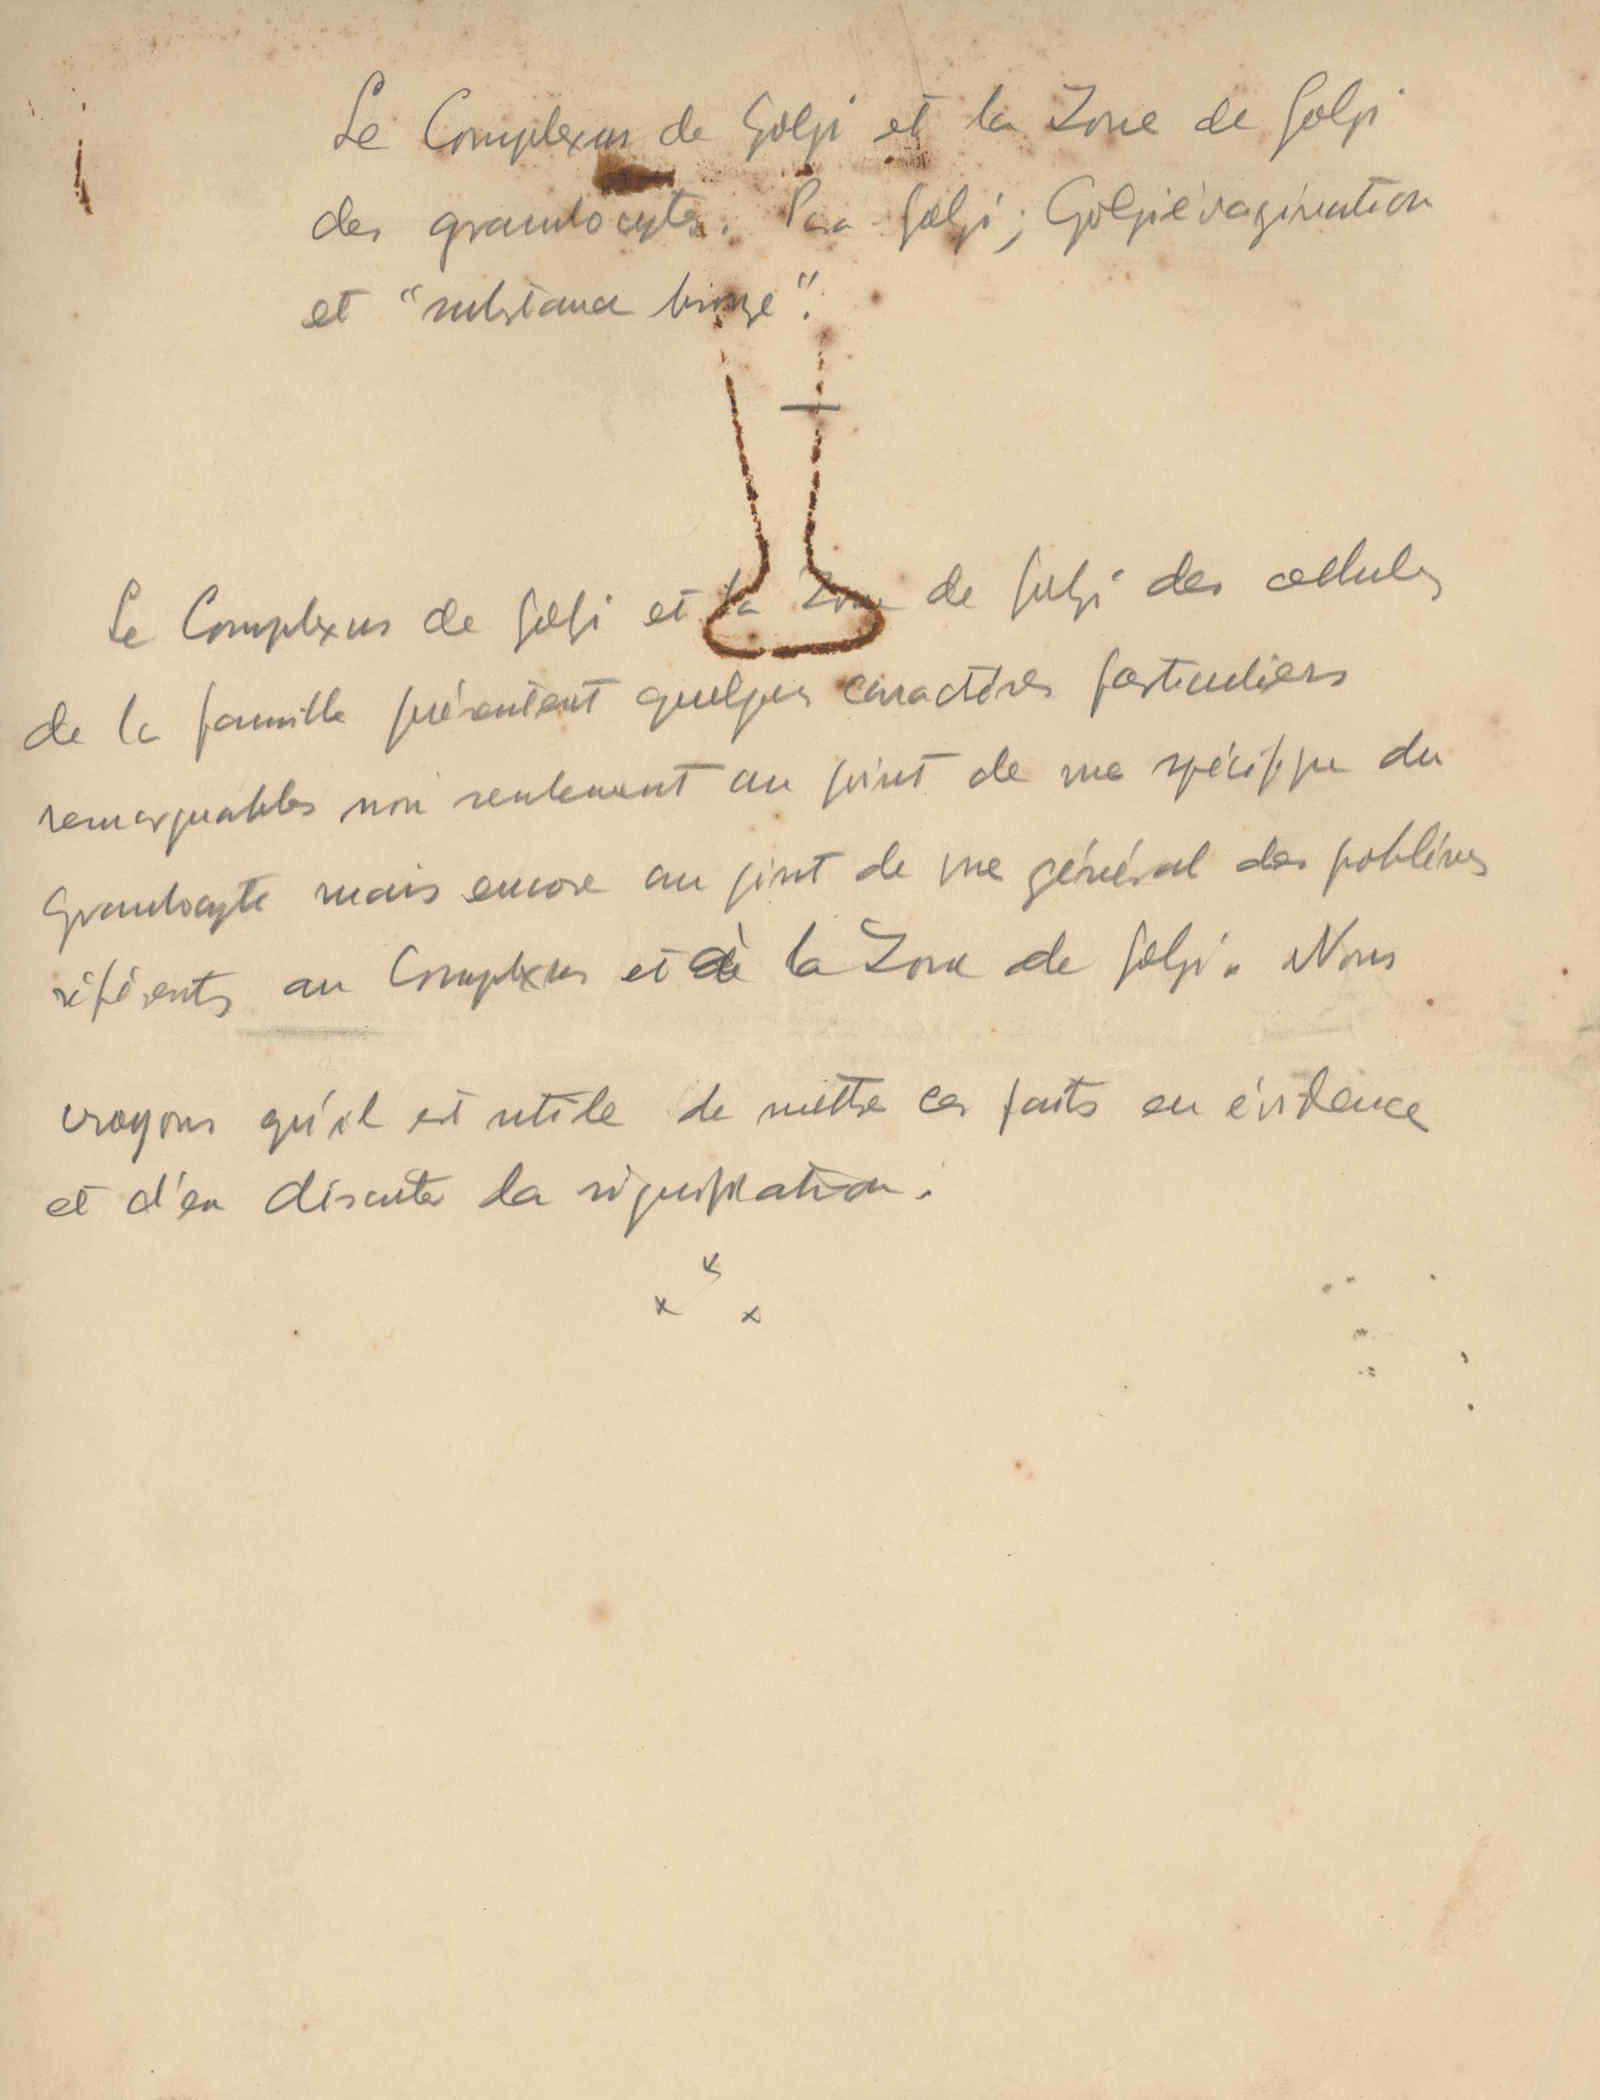 Le Complexus de Golgi et la Zone de Golgi
des granulocytes. Para-Golgi; Golgiévagination
et "substance bronze".
Le Complexus de Golgi et la Zone de Golgi des cellules
de la famille présentent quelques caractères particuliers
remarquables non seulement au point de vue spécifique du
granulocyte mais encore au point de vue général des problèmes
référents au Complexus et à la Zone de Golgi. Nous
croyons qu'il est utile de mettre ces faits en évidence
et d'en discuter la signification.
x
x x